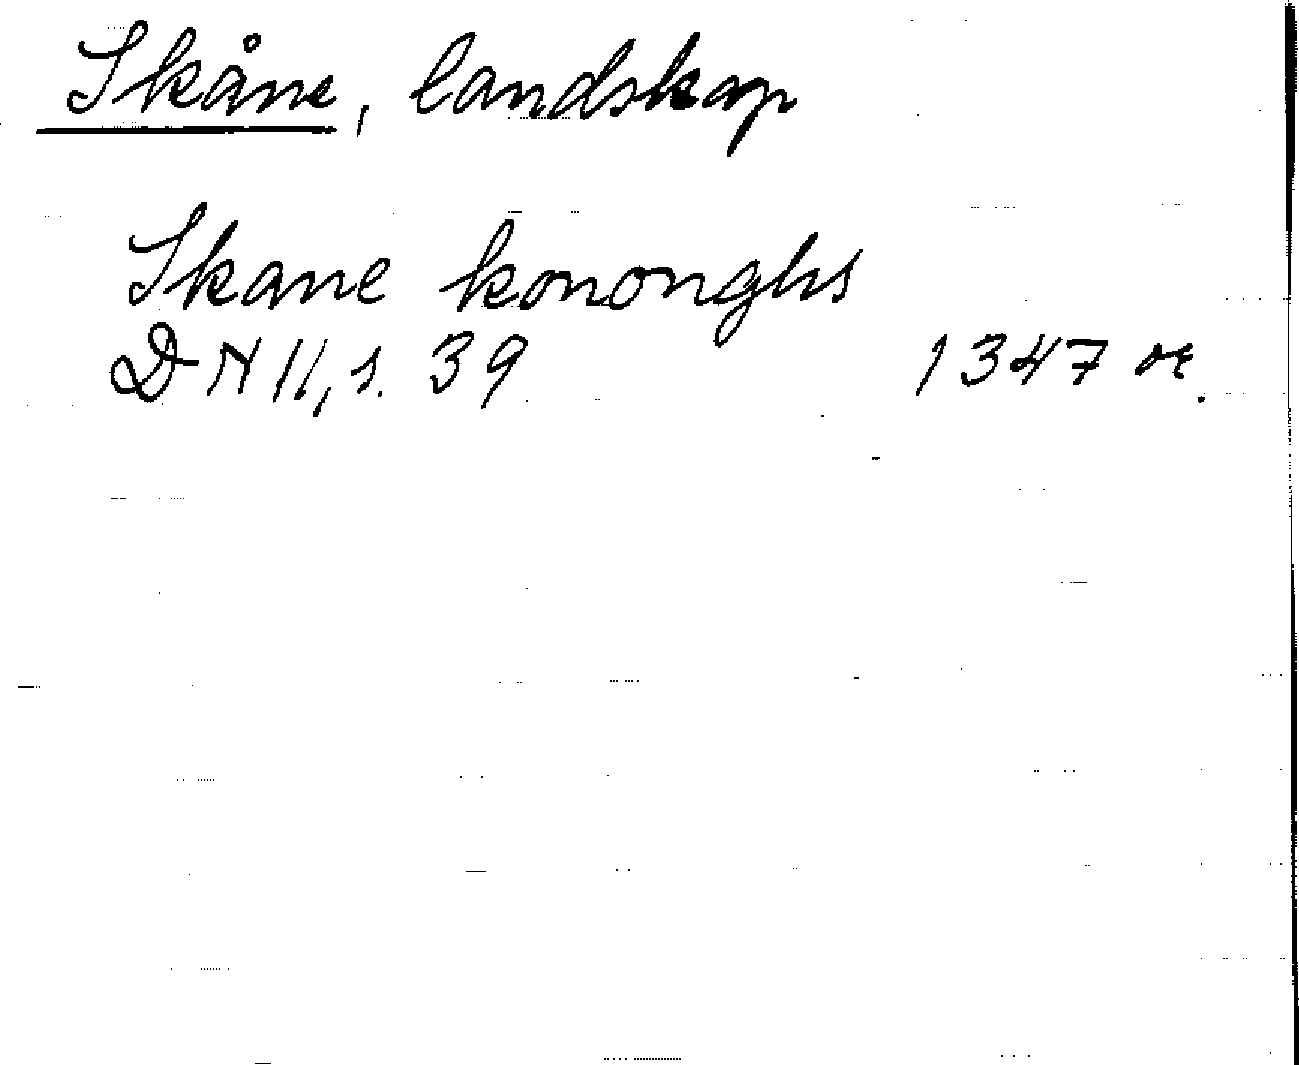 Skåne, landskap
Skane kononghs
DN 11, s. 39 1347 or.